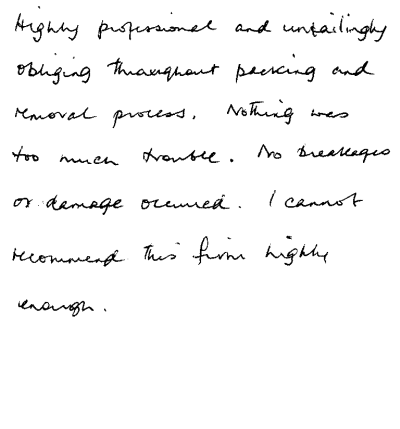 Highly professional and unfailingly
obliging throughout packing and
removal process. Nothing was
too much trouble. No breakages
or damage occurred. I cannot
recommend this firm highly
enough.